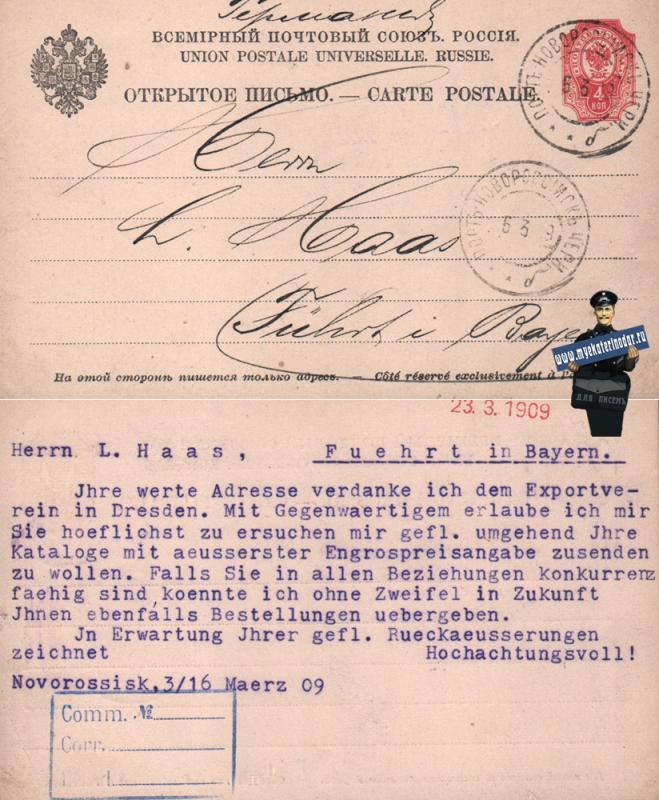 Германия
ВСЕМІРНЫЙ ПОЧТОВЫЙ СОЮЗЪ. РОССІЯ.
UNION POSTALE UNIVERSELLE. RUSSIE.
ОТКРЫТОЕ ПИСЬМО. — CARTE POSTALE.
4
КОП
Herrn
L. Haas
Führt i Bayern
ПОРТЪ НОВОРОССІЙСКЪ ЧЕРН
5 3 9
На этой сторонѣ пишется только адресъ. — Côté réservé exclusivement à
www.myekaterinodar.ru
ДЛЯ ПИСЕМЪ
23.3.1909
Herrn L. Haas, Fuehrt in Bayern.
Jhre werte Adresse verdanke ich dem Exportve-
rein in Dresden. Mit Gegenwaertigem erlaube ich mir
Sie hoeflichst zu ersuchen mir gefl. umgehend Jhre
Kataloge mit aeusserster Engrospreisangabe zusenden
zu wollen. Falls Sie in allen Beziehungen konkurrenz
faehig sind, koennte ich ohne Zweifel in Zukunft
Jhnen ebenfalls Bestellungen uebergeben.
Jn Erwartung Jhrer gefl. Rueckaeusserungen
zeichnet Hochachtungsvoll!
Novorossisk, 3/16 Maerz 09
Comm. №
Corr.